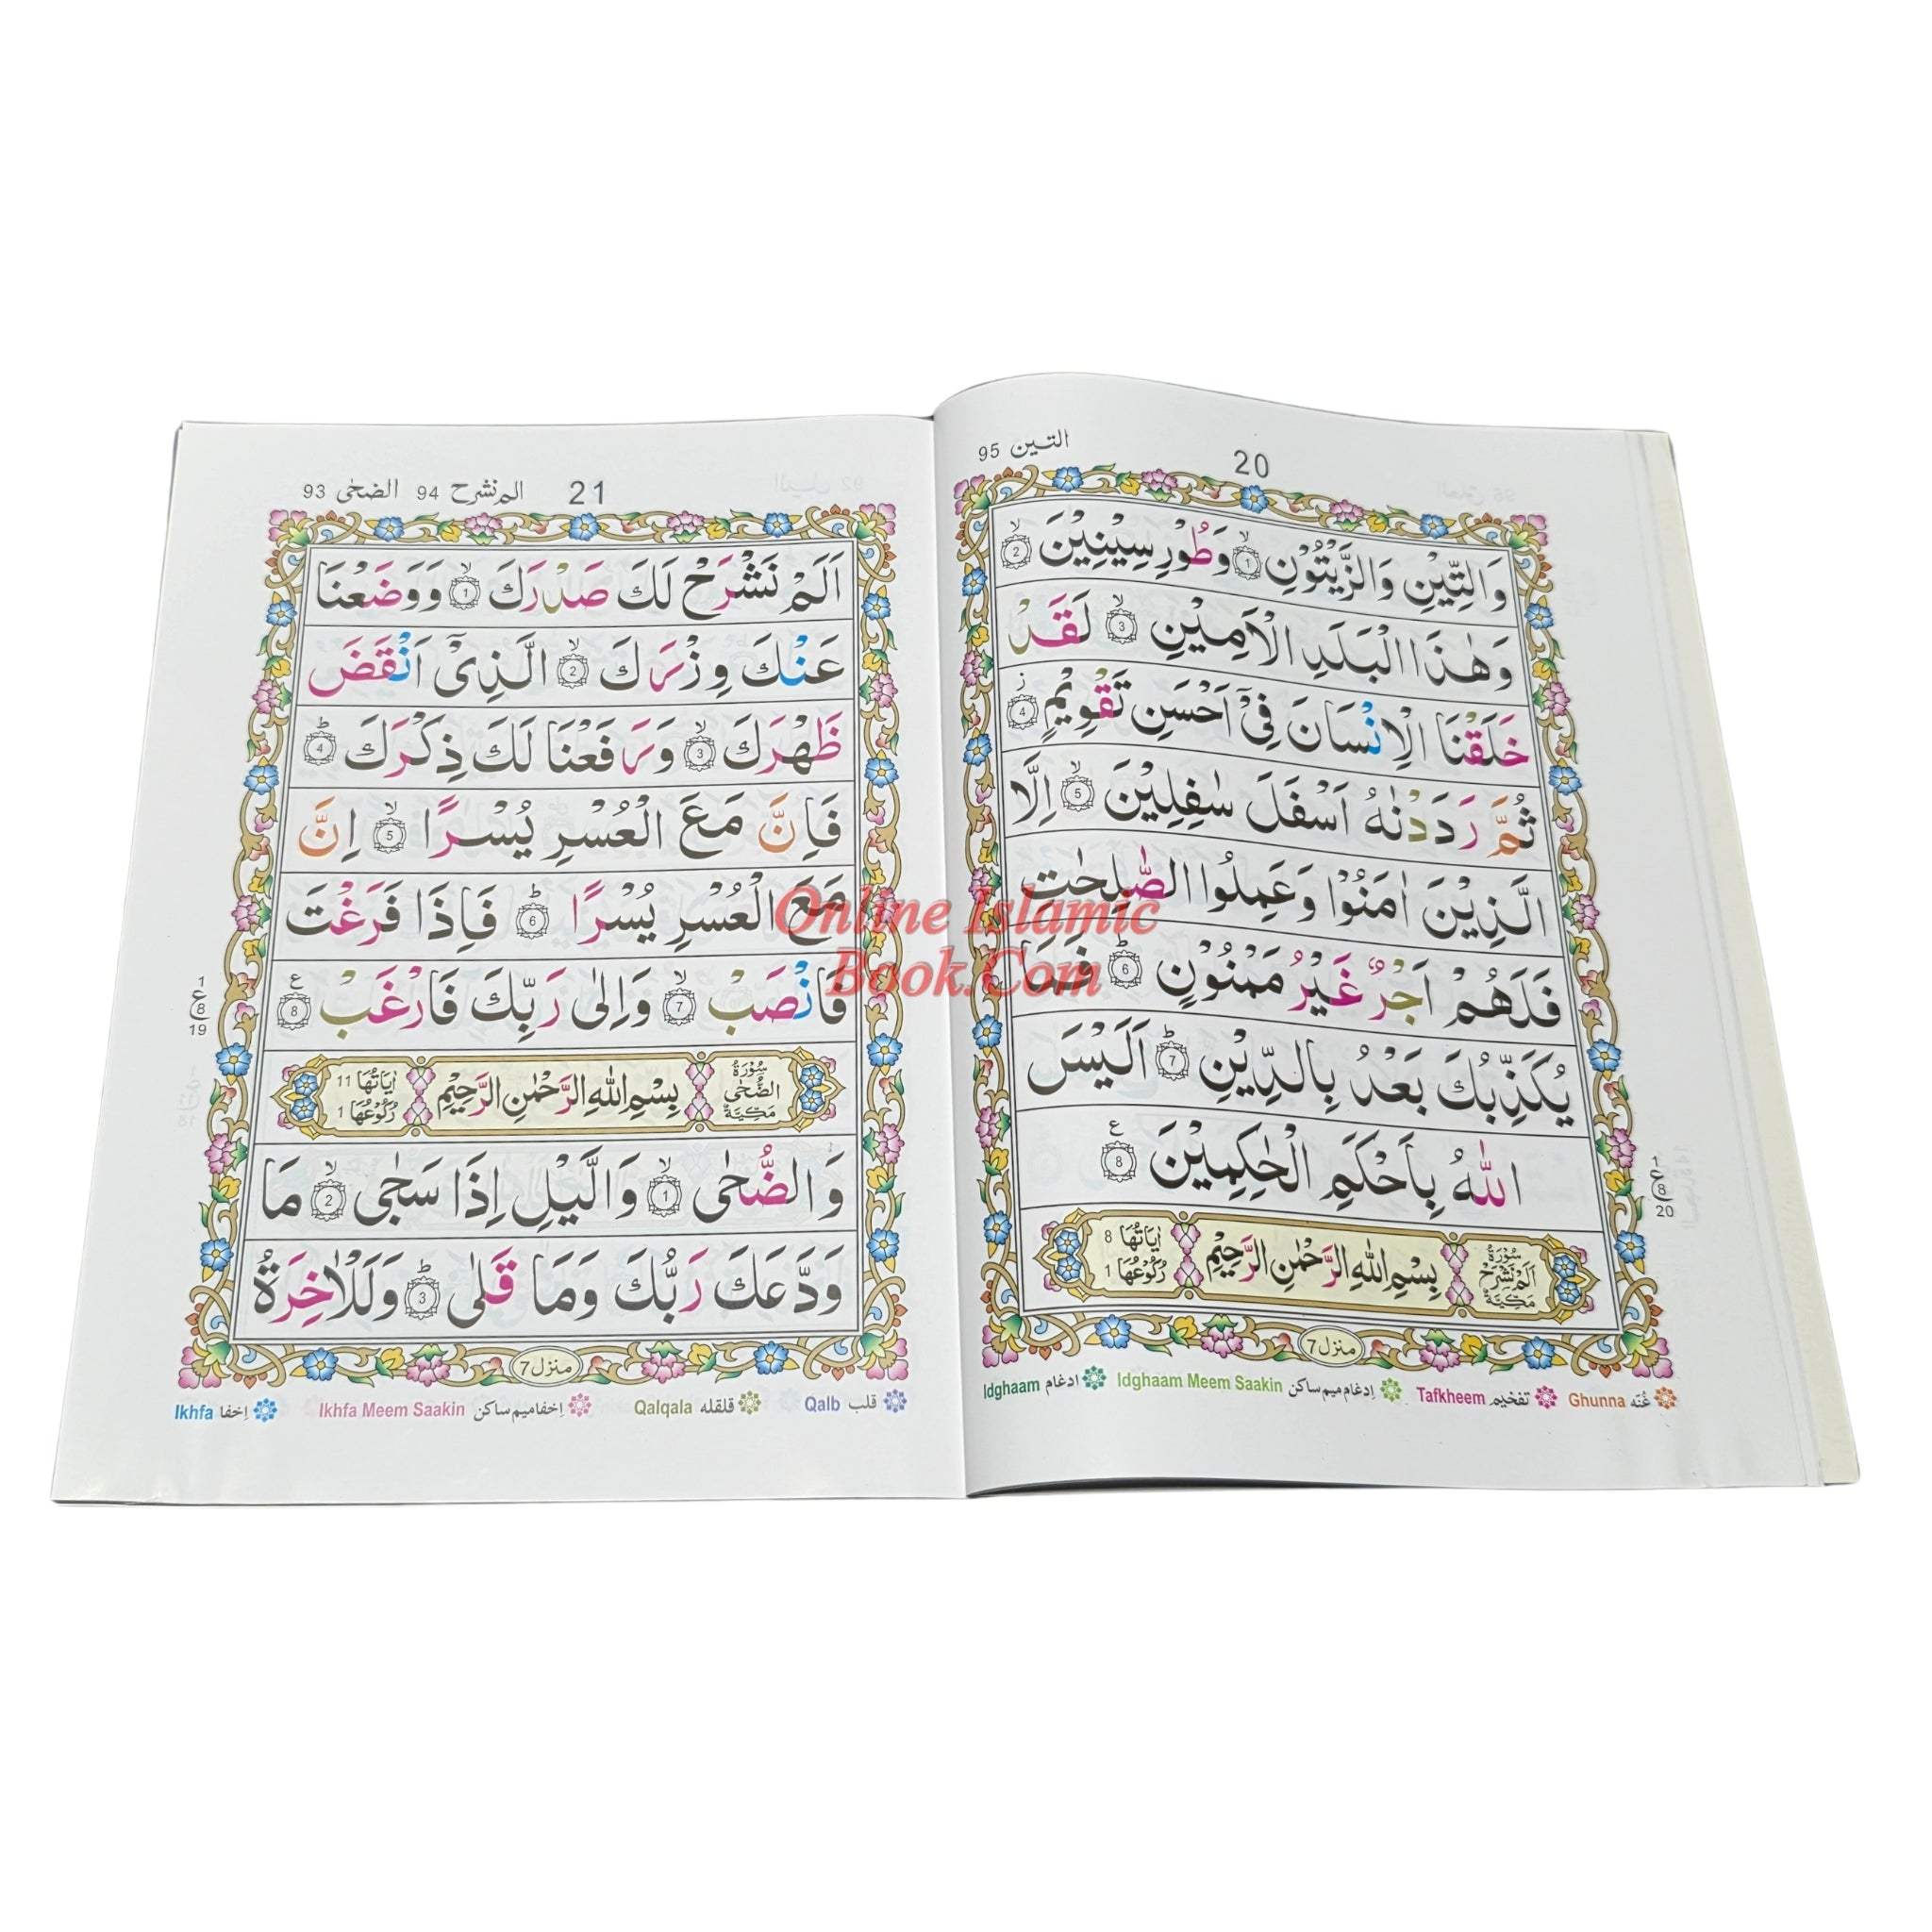 التين 95
20
وَالتِّيْنِ وَالزَّيْتُوْنِ ۙ 1 وَطُوْرِ سِيْنِيْنَ ۙ 2
وَهٰذَا الْبَلَدِ الْاَمِيْنِ ۙ 3 لَقَدْ
خَلَقْنَا الْاِنْسَانَ فِىْٓ اَحْسَنِ تَقْوِيْمٍ ز 4
ثُمَّ رَدَدْنٰهُ اَسْفَلَ سٰفِلِيْنَ ۙ 5 اِلَّا
الَّذِيْنَ اٰمَنُوْا وَعَمِلُوا الصّٰلِحٰتِ
فَلَهُمْ اَجْرٌ غَيْرُ مَمْنُوْنٍ ؕ 6 فَمَا
يُكَذِّبُكَ بَعْدُ بِالدِّيْنِ ؕ 7 اَلَيْسَ
اللّٰهُ بِاَحْكَمِ الْحٰكِمِيْنَ ع 8
1 ع 8 20
سُوْرَةُ اَلَمْ نَشْرَحْ مَكِّيَّةٌ
بِسْمِ اللّٰهِ الرَّحْمٰنِ الرَّحِيْمِ
اٰيَاتُهَا 8
رُكُوْعُهَا 1
منزل 7
Ghunna غُنّه Tafkheem تفخيم Idghaam Meem Saakin اِدغام ميم ساكن Idghaam ادغام
الضحٰى 93 الم نشرح 94 21
اَلَمْ نَشْرَحْ لَكَ صَدْرَكَ ۙ 1 وَوَضَعْنَا
عَنْكَ وِزْرَكَ ۙ 2 الَّذِىْٓ اَنْقَضَ
ظَهْرَكَ ۙ 3 وَرَفَعْنَا لَكَ ذِكْرَكَ ؕ 4
فَاِنَّ مَعَ الْعُسْرِ يُسْرًا ۙ 5 اِنَّ
مَعَ الْعُسْرِ يُسْرًا ؕ 6 فَاِذَا فَرَغْتَ
فَانْصَبْ ۙ 7 وَاِلٰى رَبِّكَ فَارْغَبْ ع 8
1 ع 8 19
سُوْرَةُ الضُّحٰى مَكِّيَّةٌ
بِسْمِ اللّٰهِ الرَّحْمٰنِ الرَّحِيْمِ
اٰيَاتُهَا 11
رُكُوْعُهَا 1
وَالضُّحٰى ۙ 1 وَالَّيْلِ اِذَا سَجٰى ۙ 2 مَا
وَدَّعَكَ رَبُّكَ وَمَا قَلٰى ؕ 3 وَلَلْاٰخِرَةُ
منزل 7
Qalb قلب Qalqala قلقله Ikhfa Meem Saakin اِخفا ميم ساكن Ikhfa اِخفا
Online Islamic
Book.Com